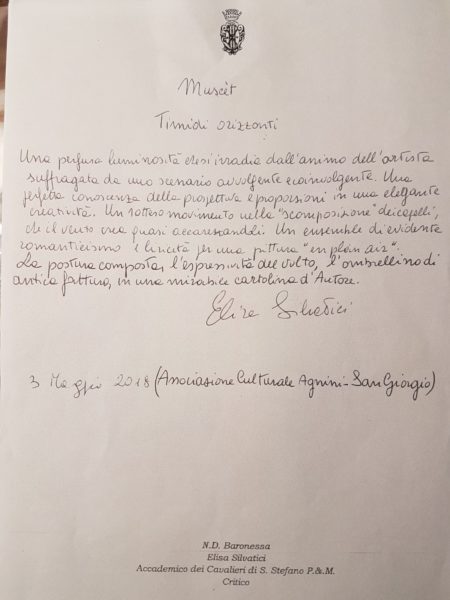 Muscèt
Timidi orizzonti
Una perfusa luminosità che si irradia dall'animo dell'artista
suffragata da uno scenario avvolgente e coinvolgente. Una
perfetta conoscenza della projettiva e proporzioni in una elegante
creatività. Un sotteso movimento nella "scomposizione" dei capelli,
che il vento crea quasi accarezzandoli. Un ensemble di evidente
romanticismo e liricità per una pittura "en plein air".
La postura composta, l'espressività del volto, l'ombrellino di
antica fattura, in una mirabile cartolina d'Autore.
Elisa Silvatici
3 Maggio 2018 (Associazione Culturale Agnini-San Giorgio)
N.D. Baronessa
Elisa Silvatici
Accademico dei Cavalieri di S. Stefano P.&M.
Critico